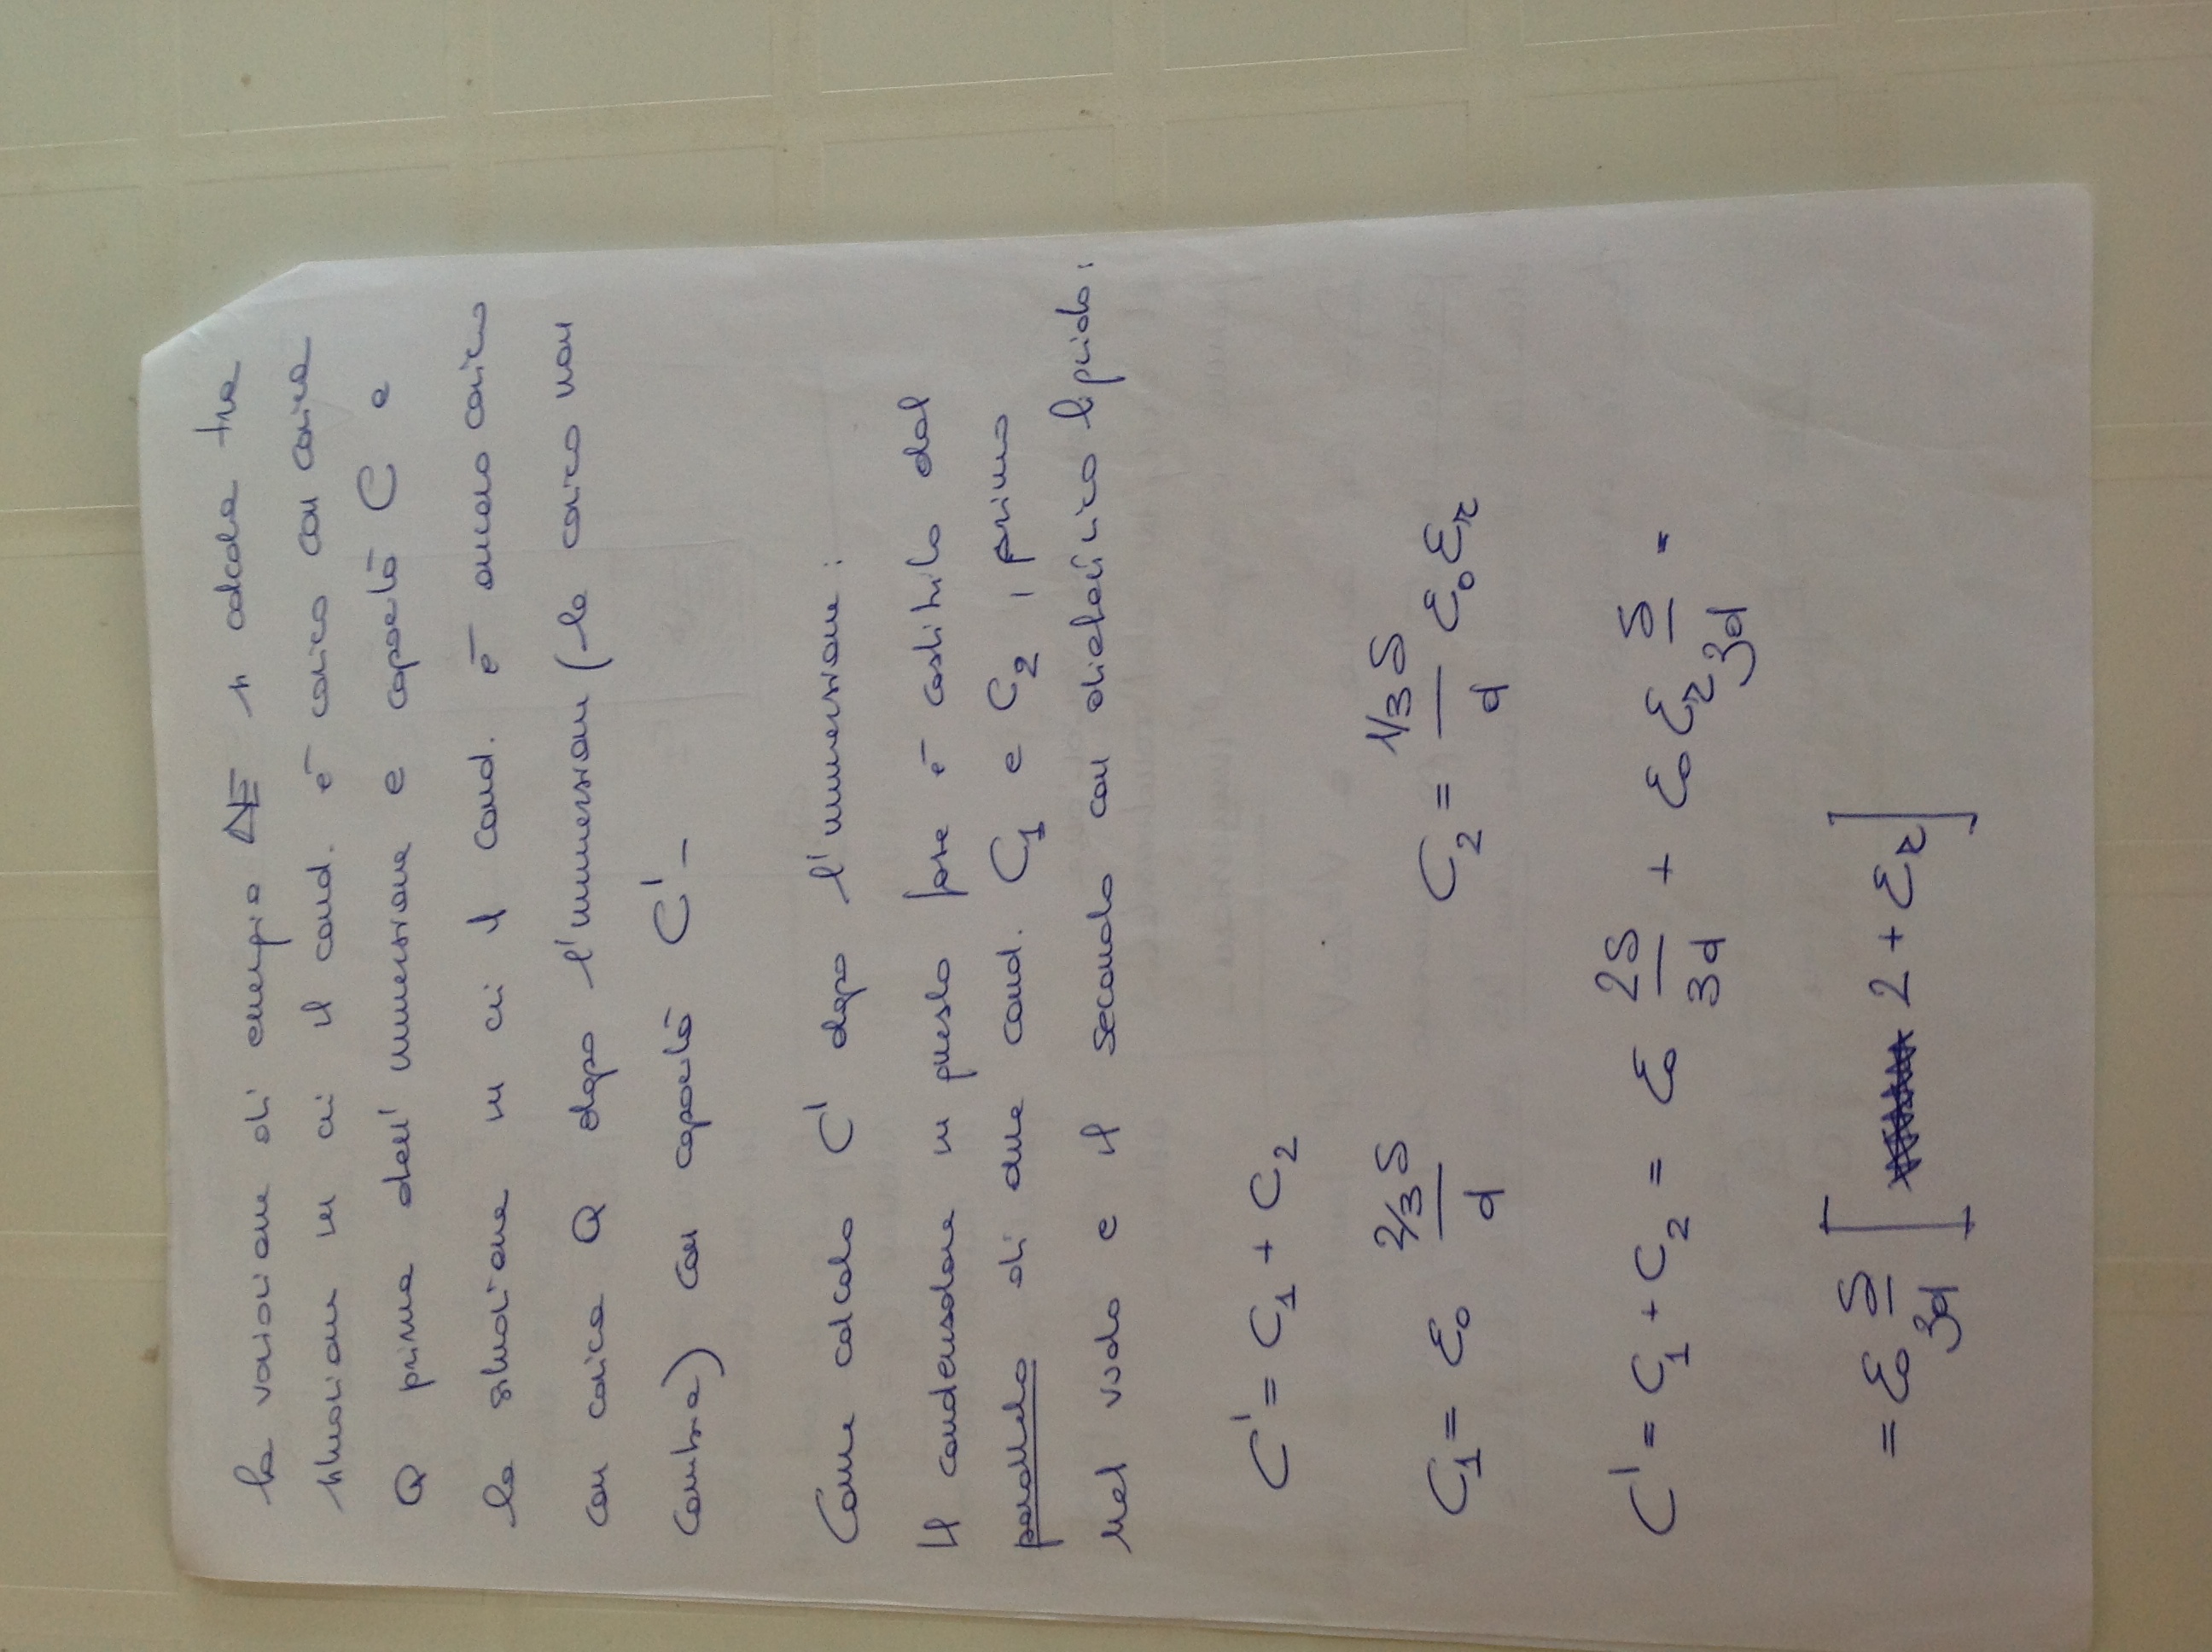 la variazione di energia ΔE si calcola tra
situazione in cui il cond. è carico con carica
Q prima dell'immersione e capacità C e
la situazione in cui il cond. è ancora carico
con carica Q dopo l'immersione (la carica non
cambia) con capacità C' -
Come calcolo C' dopo l'immersione :
Il condensatore in questa fase è costituito dal
parallelo di due cond. C₁ e C₂ , primo
nel vuoto e il secondo con dielettrico liquido :
C' = C₁ + C₂
C₁ = ε₀ (2/3 S)/d    C₂ = (1/3 S)/d ε₀ εr
C' = C₁ + C₂ = ε₀ 2S/3d + ε₀ εr S/3d =
= ε₀ S/3d [ 2 + εr ]